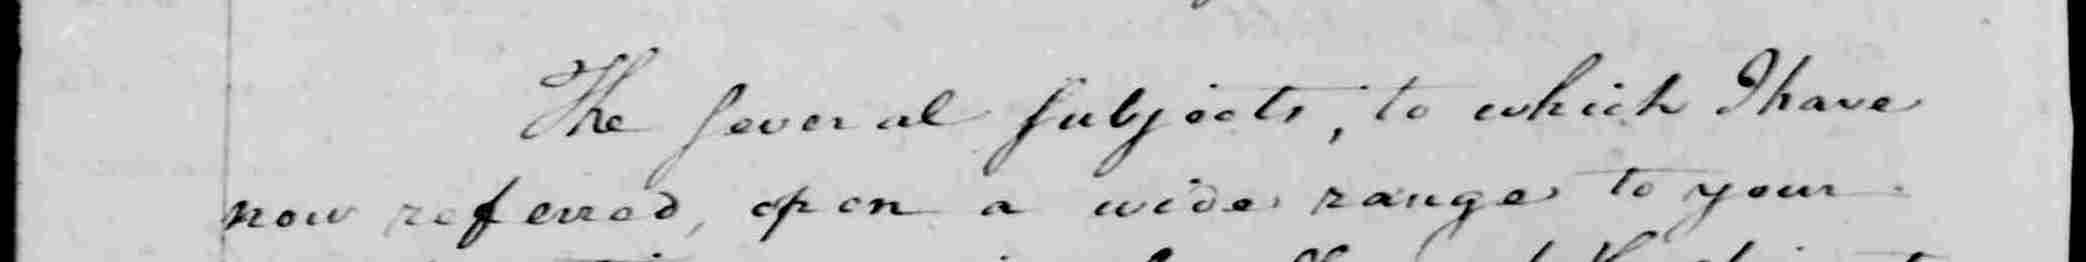 The several subjects, to which I have
now referred, open a wide range to your